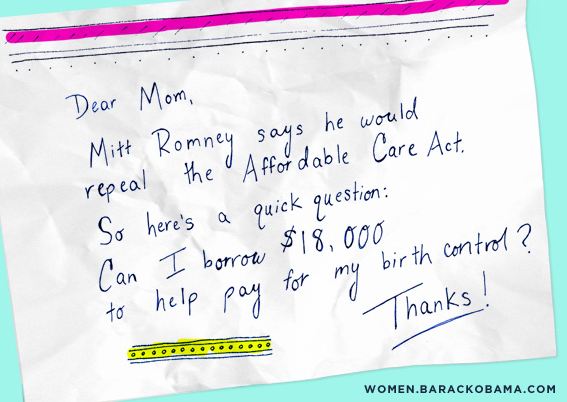 Dear Mom,
Mitt Romney says he would
repeal the Affordable Care Act.
So here's a quick question:
Can I borrow $18,000
to help pay for my birth control?
Thanks!
WOMEN.BARACKOBAMA.COM